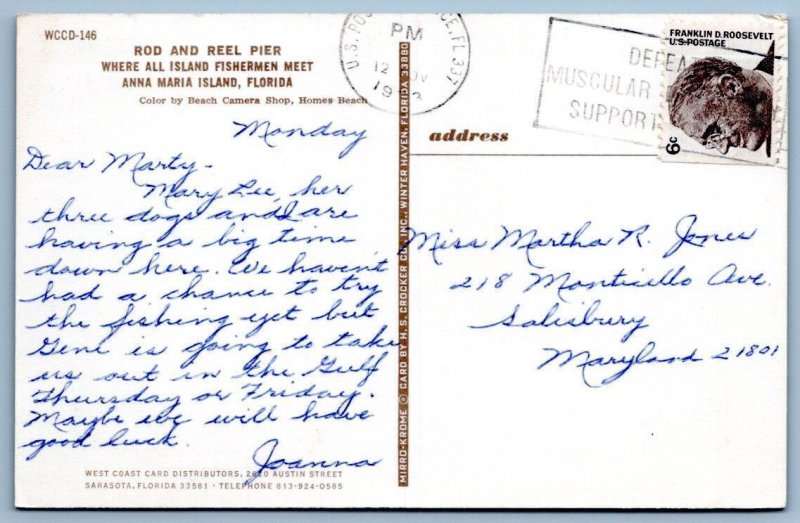 WCCD-146
ROD AND REEL PIER
WHERE ALL ISLAND FISHERMEN MEET
ANNA MARIA ISLAND, FLORIDA
Color by Beach Camera Shop, Homes Beach
Monday
Dear Marty-
Mary Lee, her
three dogs and I are
having a big time
down here. We haven't
had a chance to try
the fishing yet but
Gene is going to take
us out in the Gulf
Thursday or Friday.
Maybe we will have
good luck.
Joanna
WEST COAST CARD DISTRIBUTORS, 2820 AUSTIN STREET
SARASOTA, FLORIDA 33581 · TELEPHONE 813-924-0585
MIRRO-KROME © CARD BY H.S. CROCKER CO., INC., WINTER HAVEN, FLORIDA 33880
U.S. PO CE, FL 337
PM
12
19
DEFEA
MUSCULAR
SUPPORT
FRANKLIN D. ROOSEVELT
U.S. POSTAGE
6c
address
Miss Martha R. Jones
218 Monticello Ave.
Salisbury
Maryland 21801